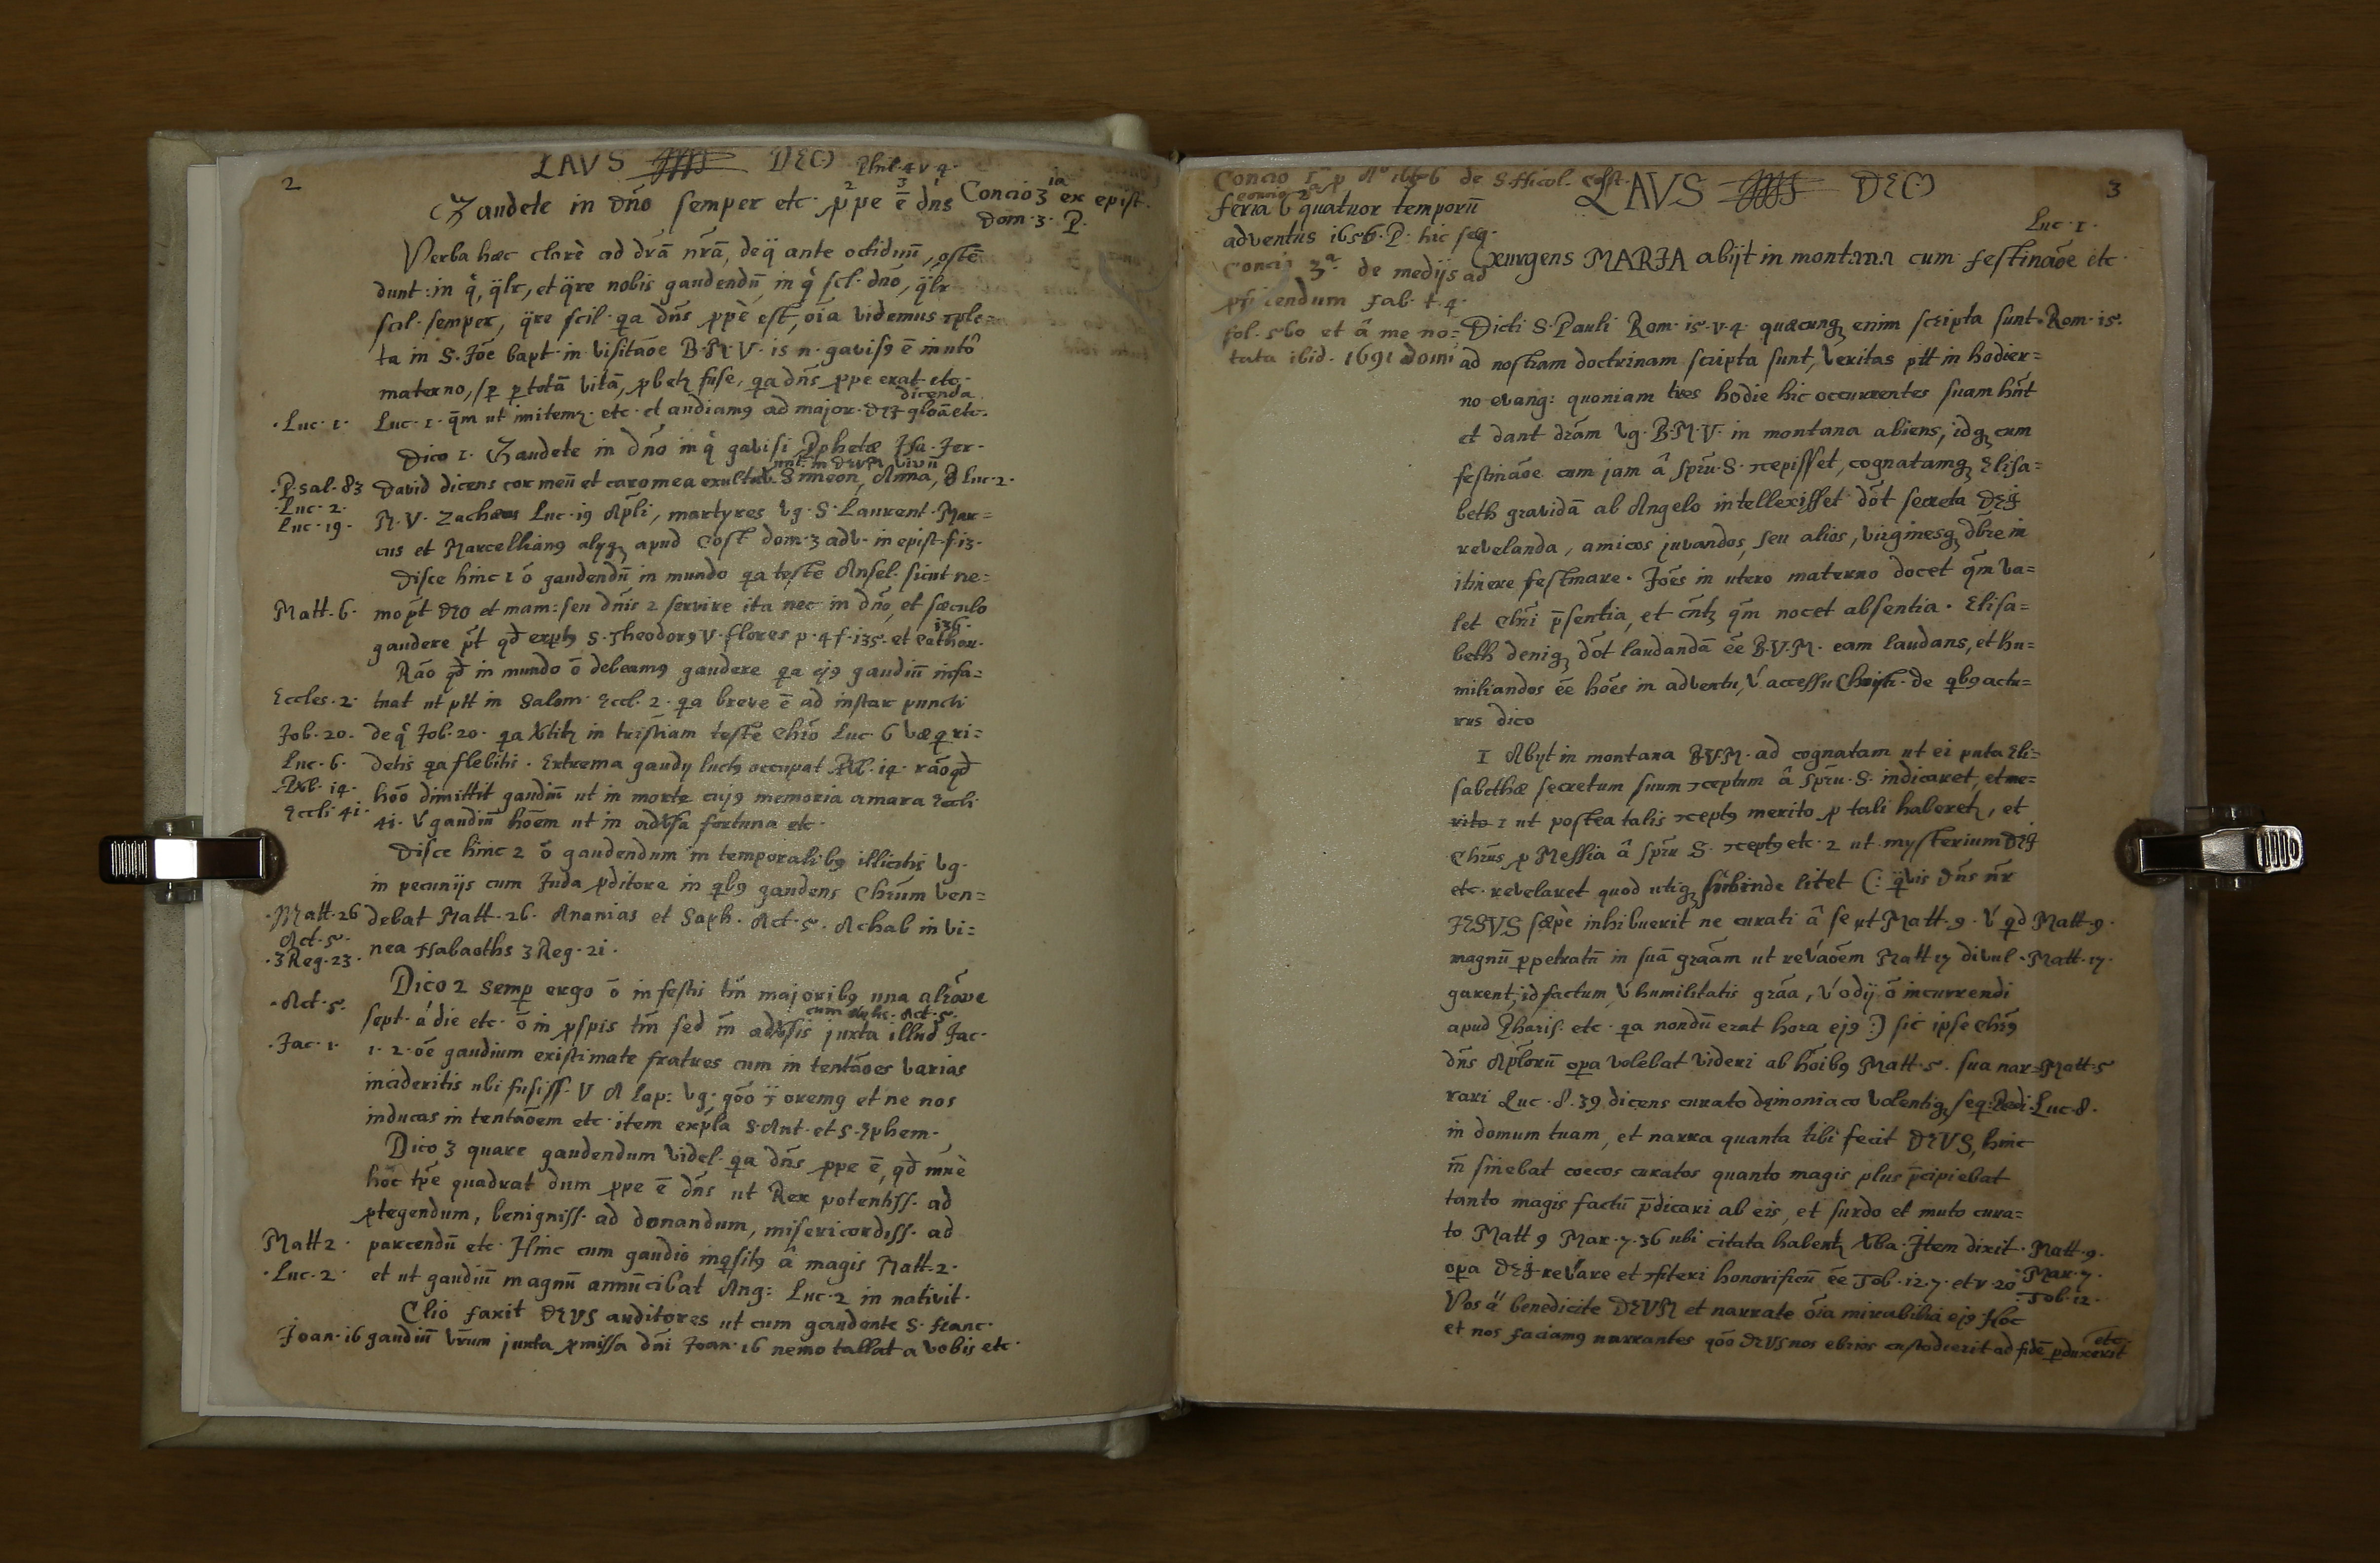 2
LAVS DEO Phil. 4 v 4.
Gaudete in dño semper etc. ppe ē dñs
Concio 3 ia ex epist.
Dom. 3. P.
Verba hæc clarè ad dr̄ā nr̄ā, deq̄ ante octiduū, oste
dunt: in q̊, q̈lr, et q̈re nobis gaudendū, in q̊ scl. dño, q̈lr
scil. semper, q̈re scil. qa dñs ppè est, oīa videmus
ta in S. Jōe bapt. in visitāoe B.M.V. is n. gavis9 ē in utō
materno, totā vitā, fuse, qa dñs ppe erat etc.
dicenda
Luc. 1. q̄m ut etc. et audiam9 ad major. DEI gloā etc.
·Luc. 1.
Dico 1. Gaudete in dño in q̊ gavisi Pphetæ Isa. Jer.
in DEVM vivū
·Psal. 83 David dicens cor meū et caro mea Simeon, Anna, Luc. 2.
·Luc. 2.
Luc. 19. M.V. Zachæus Luc. 19 Apli, martyres vg. S. Laurent. Mar=
cus et Marcellian9 apud Cost. dom. 3 adv. in epist. f. 13.
Disce hinc 1 ō gaudendū in mundo qa teste Ansel. sicut ne=
Matt. 6. mo pt DEO et mam: seu dñis 2 servire ita nec in dño, et sæculo
136.
gaudere pt qd S. Theodor9 V. flores p. 4 f. 135. et
Rāo qd in mundo ō debeam9 gaudere qa ej9 gaudiū infa=
Eccles. 2. tuat ut ptt in Salom. Eccl. 2. qa breve ē ad instar puncti
Job. 20. deq̊ Job. 20. qa in tristiam teste Chrō Luc. 6 væ ri=
Luc. 6. detis qa flebitis. Extrema gaudij occupat 14. rāo qd
14. hōō dimittit gaudiū ut in morte cuj9 memoria amara Eccli
Eccli 41. 41. gaudiū hōem ut in fortuna etc.
Disce hinc 2 ō gaudendum in temporalib9 illicitis vg.
in pecunijs cum Juda pditore in qb9 gaudens Chrūm ven=
·Matt. 26 debat Matt. 26. Ananias et Saph. Act. 5. Achab in vi=
Act. 5.
·3 Reg. 23. nea Nabaoths 3 Reg. 21.
Dico 2 semp ergo ō in festis tm̄ majorib9 una
cum Act. 5.
·Act. 5. sept. á die etc. ō in pspis tm̄ sed in juxta illud Jac.
·Jac. 1. 1. 2. ōe gaudium existimate fratres cum in tentāoes varias
incideritis ubi fusiss. V A lap: vg. qōō orem9 et ne nos
inducas in tentāoem etc. item expla S. Ant. et S. Ephem.
Dico 3 quare gaudendum videl. qa dñs ppe ē, qd
hōc tpe quadrat dum ppe ē dñs ut Rex potentiss. ad
ptegendum, benigniss. ad donandum, misericordiss. ad
Matt 2. parcendū etc. Hinc cum gaudio inqsit9 â magis Matt. 2.
·Luc. 2. et ut gaudiū magnū annūcibat Ang: Luc. 2 in nativit.
Clio faxit DEVS auditores ut cum gaudente S. Franc.
Joan. 16 gaudiū vrūm juxta pmissa dñi Joan. 16 nemo tollat a vobis etc.
Concio de S. Nicol.
concio 2a
feria 6 quatuor temporū
adventus 1656. P. hic seq.
Concio 3a. de medijs ad
t. 4.
fol. 560 et â me no=
tata ibid. 1691 domi
LAVS DEO
3
Luc. 1.
Exurgens MARIA abijt in montana cum festināoe etc.
Dicti S. Pauli Rom. 15. v. 4. quæcunq enim scripta sunt Rom. 15.
ad nostram doctrinam scripta sunt, veritas ptt in hodier=
no evang: quoniam tres hodie hic occurrentes suam hñt
et dant drām vg. B.M.V. in montana abiens, idq cum
festināoe cum jam â spru. S. ɔcepisset, cognatamq Elisa=
beth gravidā ab Angelo intellexisset dōt secreta DEI
revelanda, amicos juvandos, seu alios, virginesq dbre in
itinere festinare. Jōes in utero materno docet q̄m va=
let Chri p̄sentia, et q̄m nocet absentia. Elisa=
beth deniq dōt laudandā ēē B.V.M. eam laudans, et hu=
miliandos ēē hōes in adventu, accessu Christi. de qb9 actu=
rus dico
1 Abijt in montana B.V.M. ad cognatam ut ei puta Eli=
sabethæ secretum suum ɔceptum â spru. S. indicaret, et me=
rito 1 ut postea talis ɔcept9 merito p tali haberet, et
Chrus p Messia â spru S. ɔcept9 etc. 2 ut mysterium DEI
etc. revelaret quod utiq subinde litet (: q̈vis dñs nr̄
JESVS sæpè inhibuerit ne curati â se ut Matt. 9. qd Matt. 9.
magnū ppetratū in suā grāam ut revāoem Matt 17 divul= Matt. 17.
garent, id factum humilitatis grāa, odij ō incurrendi
apud Pharis. etc. qa nondū erat hora ej9 :) sic ipse Chr9
dñs Aplorū opa volebat videri ab hōib9 Matt. 5. sua nar= Matt. 5
rari Luc. 8. 39 dicens curato dæmoniaco volentiq seq: Redi Luc. 8.
in domum tuam, et narra quanta tibi fecit DEVS, hinc
sinebat coecos curatos quanto magis plus p̄cipiebat
tanto magis factū p̄dicari ab eis, et surdo et muto cura=
to Matt 9 Mar. 7. 36 ubi citata Item dixit Matt. 9.
opa DEI revāre et ɔfiteri honorificū ēē Tob. 12. 7. et v. 20 Mar. 7.
Tob. 12.
Vos benedicite DEVM et narrate ōia mirabilia ej9. Hoc
et nos faciam9 narrantes qōō DEVS nos ebrios custodierit ad fidē pduxerit
etc.